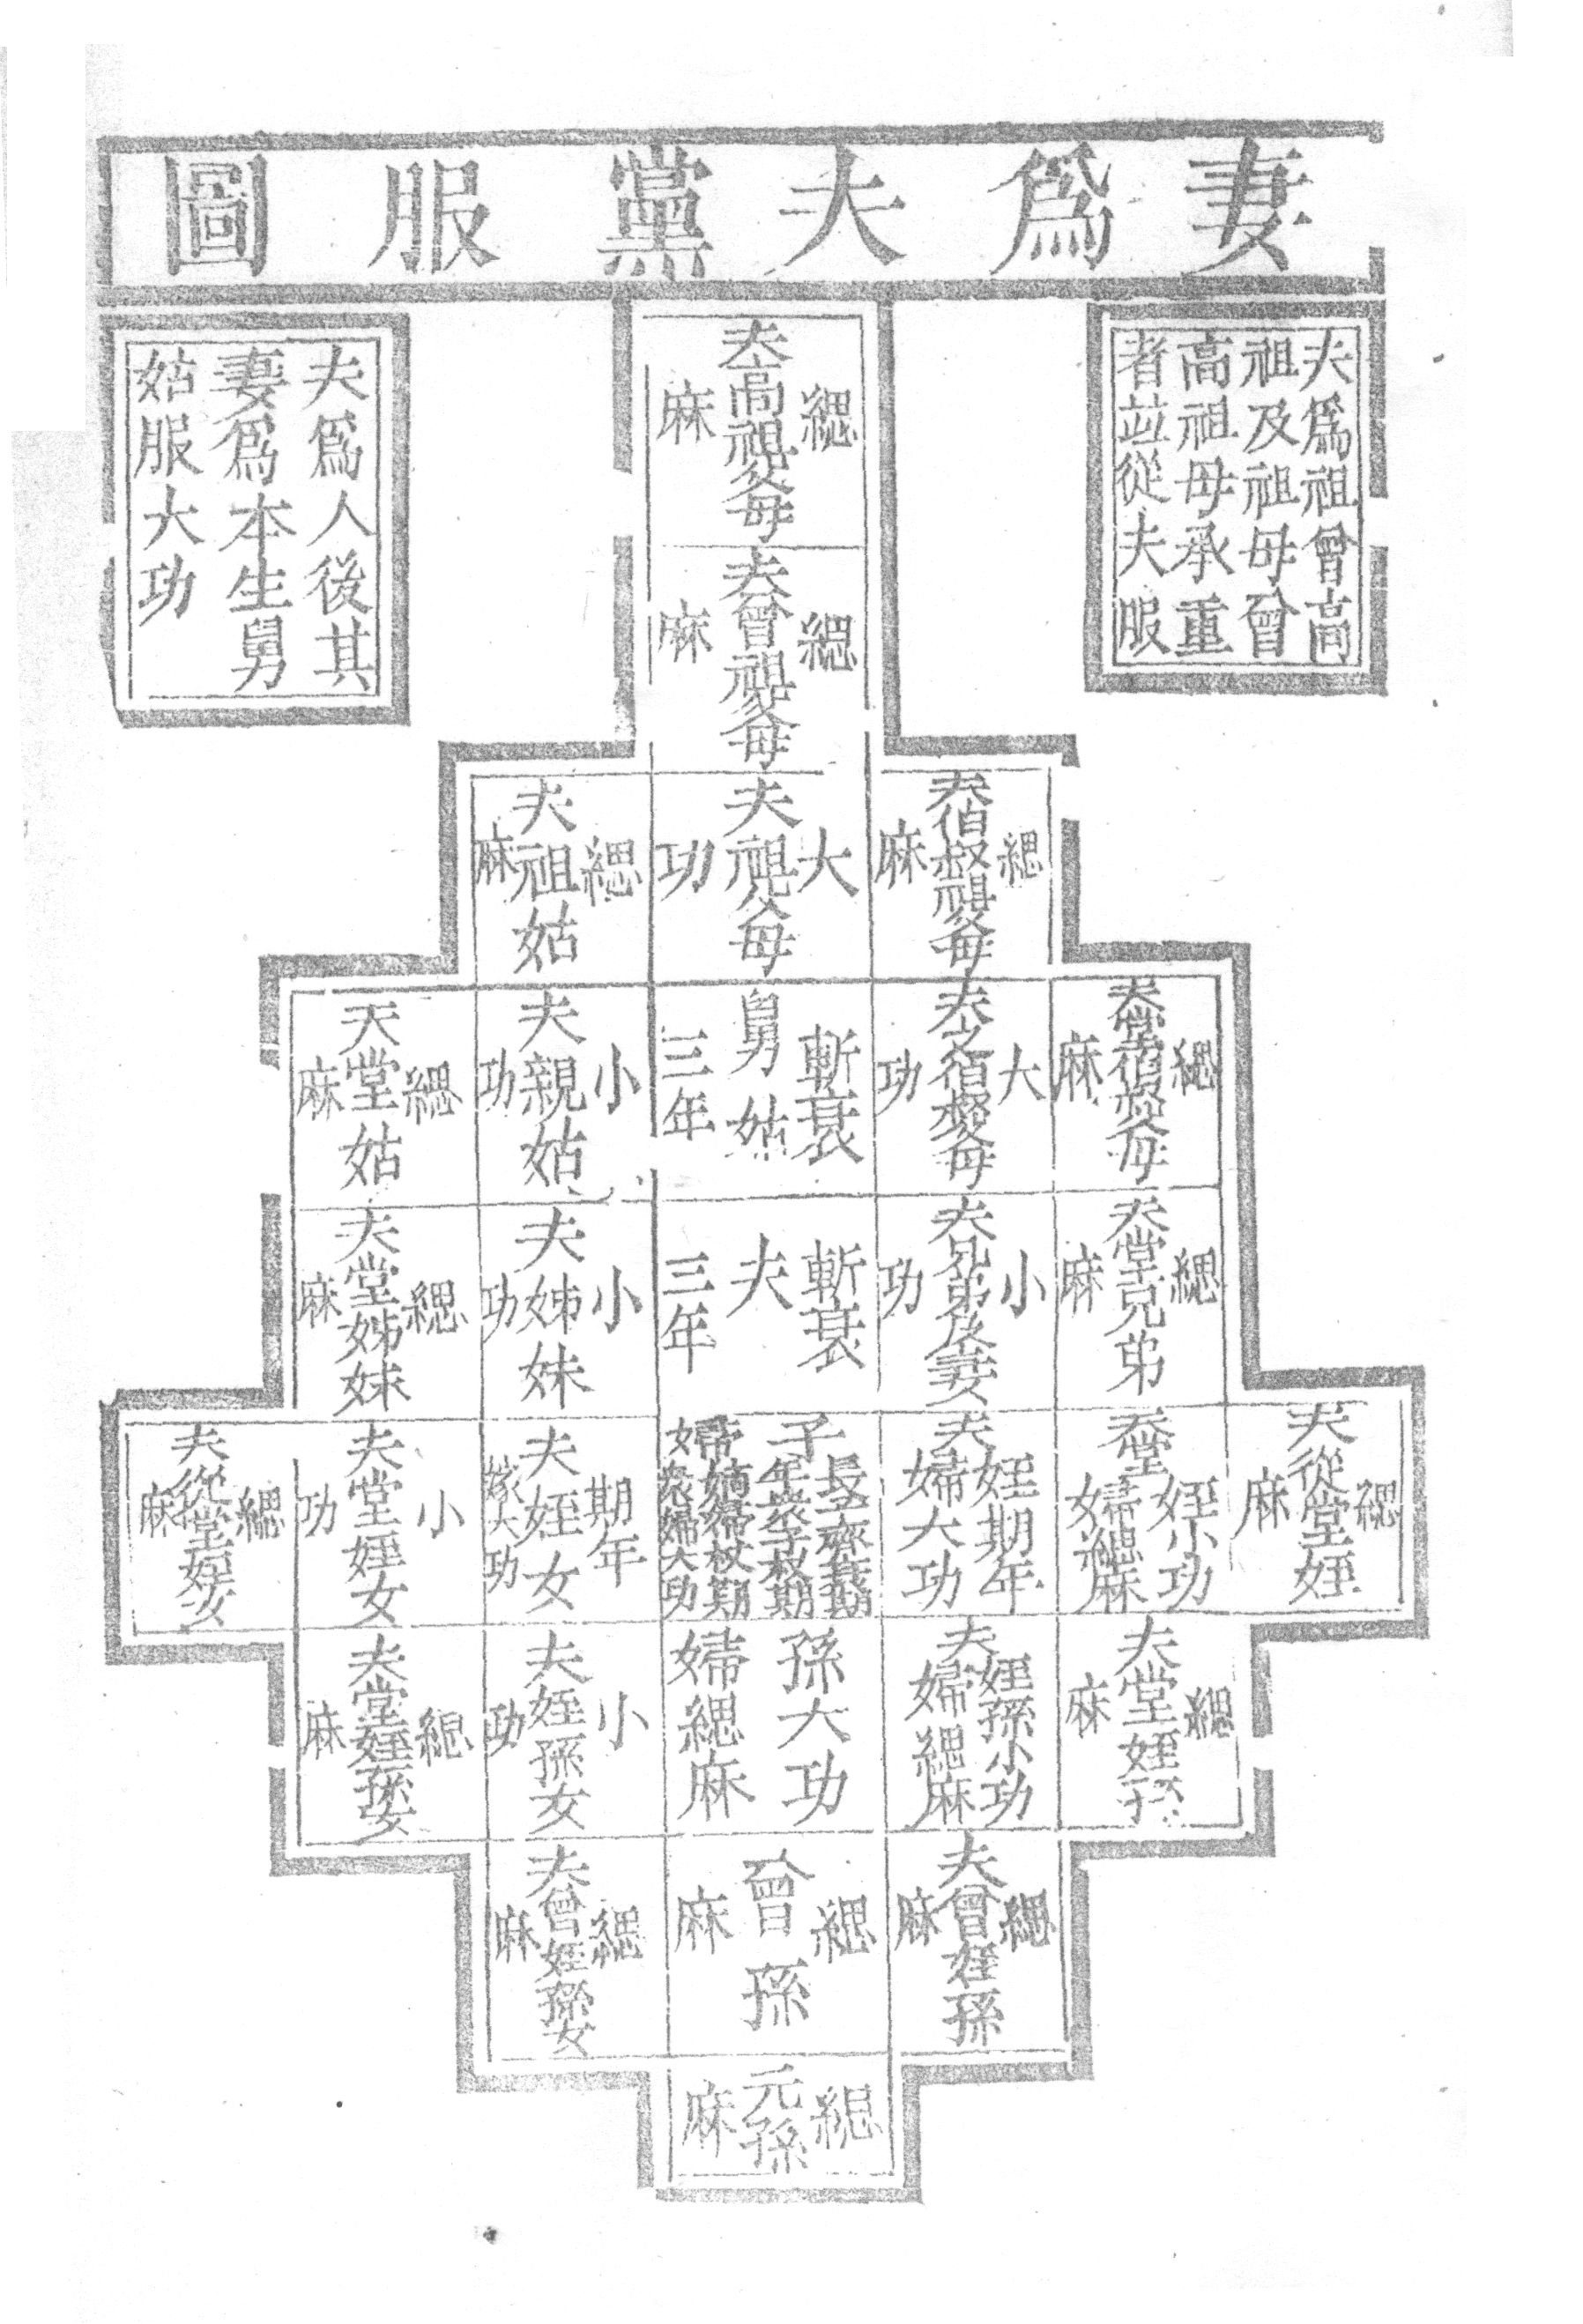 妻爲夫黨服圖
夫爲祖曾高
祖及祖母曾
高祖母承重
者並從夫服
夫高祖父母
緦麻
夫曾祖父母
緦麻
夫爲人後其
妻爲本生舅
姑服大功
夫伯叔祖父母
緦麻
夫祖父母
大功
夫祖姑
緦麻
夫堂伯叔父母
緦麻
夫之伯叔父母
大功
舅姑
斬衰三年
夫親姑
小功
夫堂姑
緦麻
夫堂兄弟
緦麻
夫兄弟及妻
小功
夫
斬衰三年
夫姊妹
小功
夫堂姊妹
緦麻
夫從堂姪
緦麻
夫堂姪小功
婦緦麻
夫姪期年
婦大功
子
長子齊衰期
年衆子杖期
婦
嫡婦杖期
衆婦大功
夫姪女
期年
嫁大功
夫堂姪女
小功
夫從堂姪女
緦麻
夫堂姪孫
緦麻
夫姪孫小功
婦緦麻
孫大功
婦緦麻
夫姪孫女
小功
夫堂姪孫女
緦麻
夫曾姪孫
緦麻
曾孫
緦麻
夫曾姪孫女
緦麻
元孫
緦麻